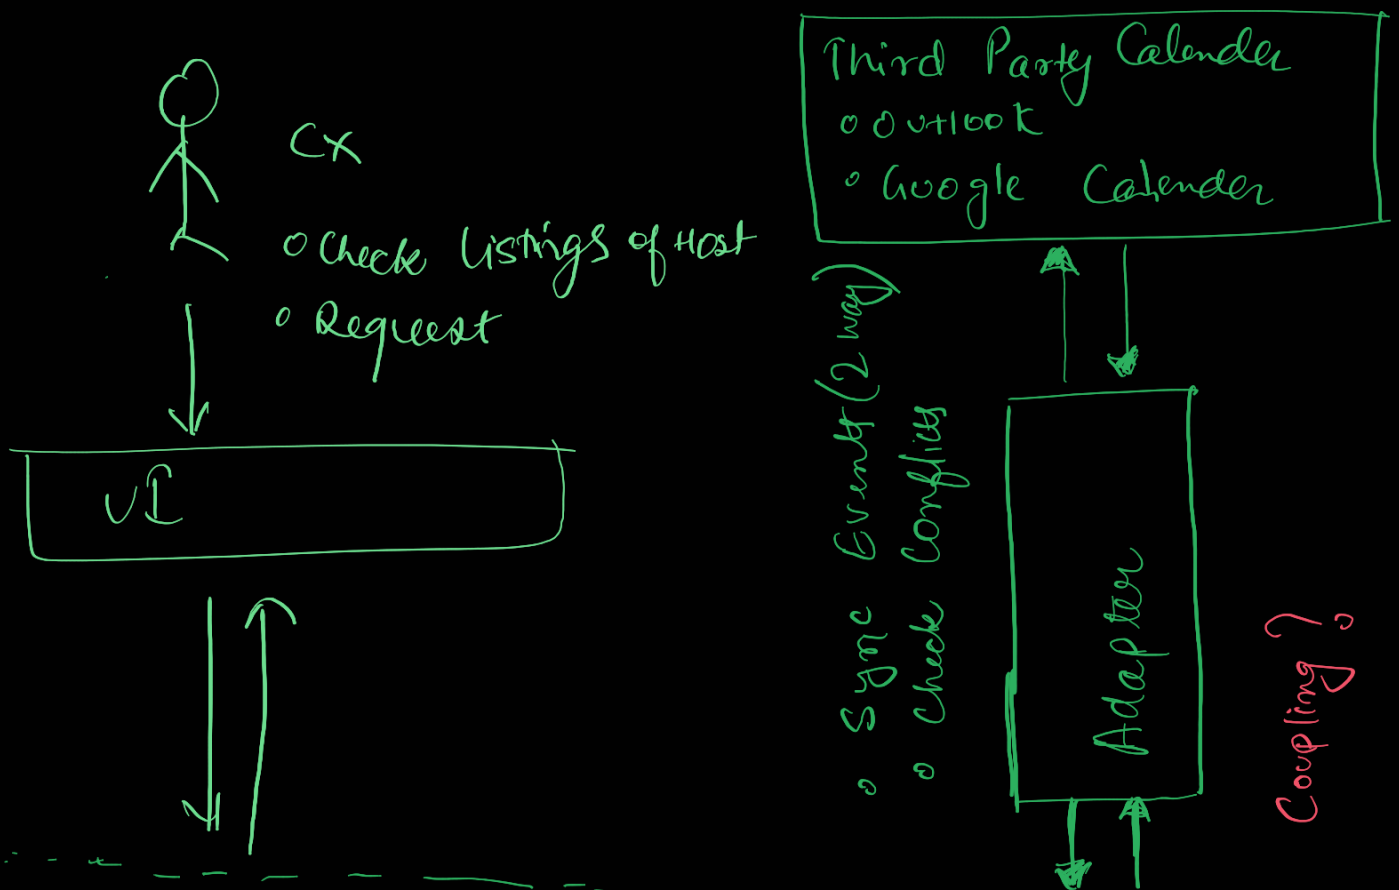 CX
o Check Listings of Host
o Request
UI
Third Party Calender
o Outlook
o Google Calender
o Sync Events (2 way)
o Check Conflicts
Adapter
Coupling?